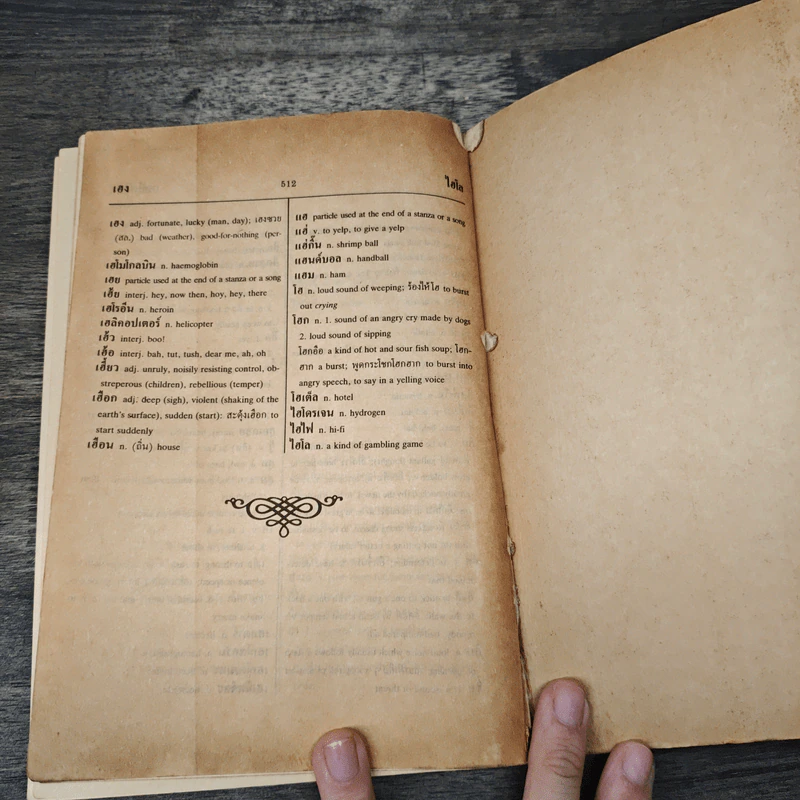 เฮง
512
ไฮโล
เฮง adj. fortunate, lucky (man, day); เฮงซวย
(สล.) bad (weather), good-for-nothing (per-
son)
เฮโมโกลบิน n. haemoglobin
เฮย particle used at the end of a stanza or a song
เฮ้ย interj. hey, now then, hoy, hey, there
เฮโรอีน n. heroin
เฮลิคอปเตอร์ n. helicopter
เฮ้ว interj. boo!
เฮ้อ interj. bah, tut, tush, dear me, ah, oh
เฮี้ยว adj. unruly, noisily resisting control, ob-
streperous (children), rebellious (temper)
เฮือก adj. deep (sigh), violent (shaking of the
earth's surface), sudden (start): สะดุ้งเฮือก to
start suddenly
เฮือน n. (ถิ่น) house
แฮ particle used at the end of a stanza or a song
แฮ่ v. to yelp, to give a yelp
แฮ่กึ๊น n. shrimp ball
แฮนด์บอล n. handball
แฮม n. ham
โฮ n. loud sound of weeping; ร้องไห้โฮ to burst
out crying
โฮก n. 1. sound of an angry cry made by dogs
2. loud sound of sipping
โฮกอือ a kind of hot and sour fish soup; โฮก-
ฮาก a burst; พูดกระโชกโฮกฮาก to burst into
angry speech, to say in a yelling voice
โฮเต็ล n. hotel
ไฮโดรเจน n. hydrogen
ไฮไฟ n. hi-fi
ไฮโล n. a kind of gambling game